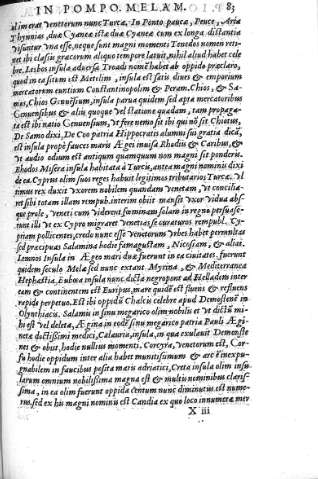 IN POMPO. MELAM. 83
ul imerat Venetorum nunc Turcæ. In Ponto pauca, Peuce, Aria
Thynnias, duæ Cyaneæ istæ duæ Cyaneæ cum ex longa distantia
visuntur una esse, neque sunt magni momenti Tenedos nomen reti-
net ibi classis græcorum aliquo tempore latuit, nihil aliud habet cele
bre. Lesbos insula adversa Troadi nomen habet ab oppido præclaro,
quod in ea situm est Metelim, insula est satis dives & emporium
mercatorum euntium Constantinopolim & Peram. Chios, & Sa-
mos, Chios Genuesium, insula parua quidem sed apta mercatoribus
Genuensibus & aliis quoque est statione quadam, tam propaga-
ta est ibi natio Genuensium, ut fere nemo sit ibi qui nõ sit Chiotus,
De Samo dixi, De Coo patria Hippocratis alumni sui gratia dicã,
est insula propè fauces maris Aegei inuisa Rhodiis & Caribus, &
ut audio odium est antiquum quamquam non magni sit ponderis.
Rhodos Misera insula habitata à Turcis, antea magni nominis dixi
de ea. Cyprus olim suos reges habuit legitimos tributarios Turcæ. Vl
timus rex duxit vxorem nobilem quandam venetam, ut concilia-
ret sibi totam illam rempub. interim obiit mansit vxor vidua abs-
que prole, veneti cum viderent fœminam solam in regno persuase-
runt illi ut ex Cypro migraret Venetias se curaturos rempub. Cy-
priam pollicentes, credo nunc esse Venetorum vrbes habet permultas
sed præcipuas Salamina hodie famagustam, Nicosiam, & alias.
Lemnos Insula in Aegeo mari duæ fuerunt in ea ciuitates. fuerunt
quidem seculo Mela sed nunc extant Myrina, & Mediterranea
Hephæstia, Eubœa insula nunc dicta negropont ad Helladem inter
eam & continentem est Euripus, mare quod est fluens & refluens
rapido perpetuo. Est ibi oppidũ Chalcis celebre apud Demostenẽ in
Olynthiacis. Salamis in sinu megarico olim nobilis et ut dictũ mi-
hi est vel deleta, Aegina in eodẽ sinu megarico patria Pauli Aegi-
netæ doctissimi medici, Calauria, insula, in qua exulauit Demosthe
nes & obiit, hodie nullius momenti. Corcyra, venetorum est, Cor-
fu hodie oppidum inter alia habet munitissimum & arcẽ inexpu-
gnabilem in faucibus posita maris adriatici, Creta insula olim insu-
larum omnium nobilissima magna est & multis nominibus claris-
sima, in ea olim fuerunt oppida centum nunc diminutus est nume-
rus, sed ex his magni nominis est Candia ex quo loco innumeræ mer
X iii